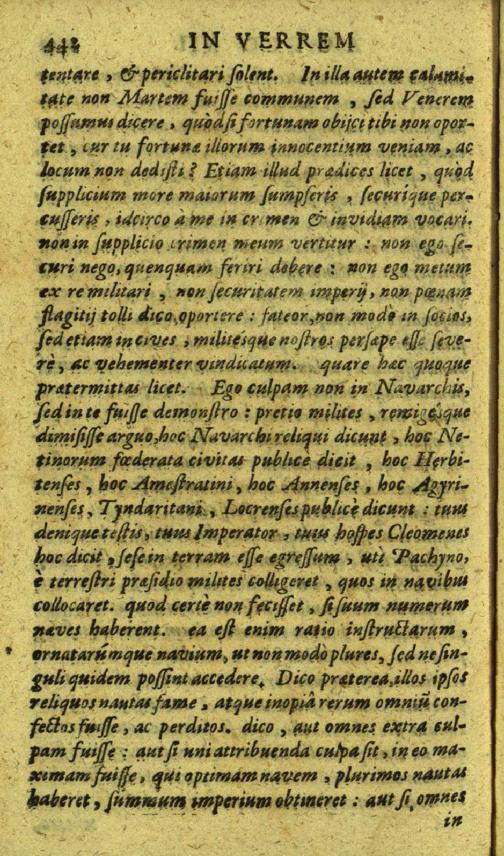 442 IN VERREM
tentare, & periclitari solent. In illa autem calami-
tate non Martem fuisse communem, sed Venerem
possumus dicere, quòd si fortunam obijci tibi non opor-
tet, cur tu fortunæ illorum innocentium veniam, ac
locum non dedisti? Etiam illud prædices licet, quòd
supplicium more maiorum sumpseris, securique per-
cusseris, idcirco à me in crimen & invidiam vocari.
non in supplicio crimen meum vertitur: non ego se-
curi nego, quenquam feriri debere: non ego metum
ex re militari, non securitatem imperij, non pœnam
flagitij tolli dico, oportere: fateor, non modo in socios,
sed etiam in cives, militesque nostros persæpe esse seve-
rè, ac vehementer vindicatum. quare hæc quoque
prætermittas licet. Ego culpam non in Navarchis,
sed in te fuisse demonstro: pretio milites, remigésque
dimisisse arguo, hoc Navarchi reliqui dicunt, hoc Ne-
tinorum fœderata civitas publicè dicit, hoc Herbi-
tenses, hoc Amestratini, hoc Annenses, hoc Agyri-
nenses, Tyndaritani, Locrenses publicè dicunt: tuus
denique testis, tuus Imperator, tuus hospes Cleomenes
hoc dicit, sese in terram esse egressum, uti Pachyno,
è terrestri præsidio milites colligeret, quos in navibus
collocaret. quod certè non fecisset, si suum numerum
naves haberent. ea est enim ratio instructarum,
ornatarúmque navium, ut non modò plures, sed ne sin-
guli quidem possint accedere. Dico præterea, illos ipsos
reliquos nautas fame, atque inopiâ rerum omniũ con-
fectos fuisse, ac perditos. dico, aut omnes extra cul-
pam fuisse: aut si uni attribuenda culpa sit, in eo ma-
ximam fuisse, qui optimam navem, plurimos nautas
haberet, summum imperium obtineret: aut si, omnes
in